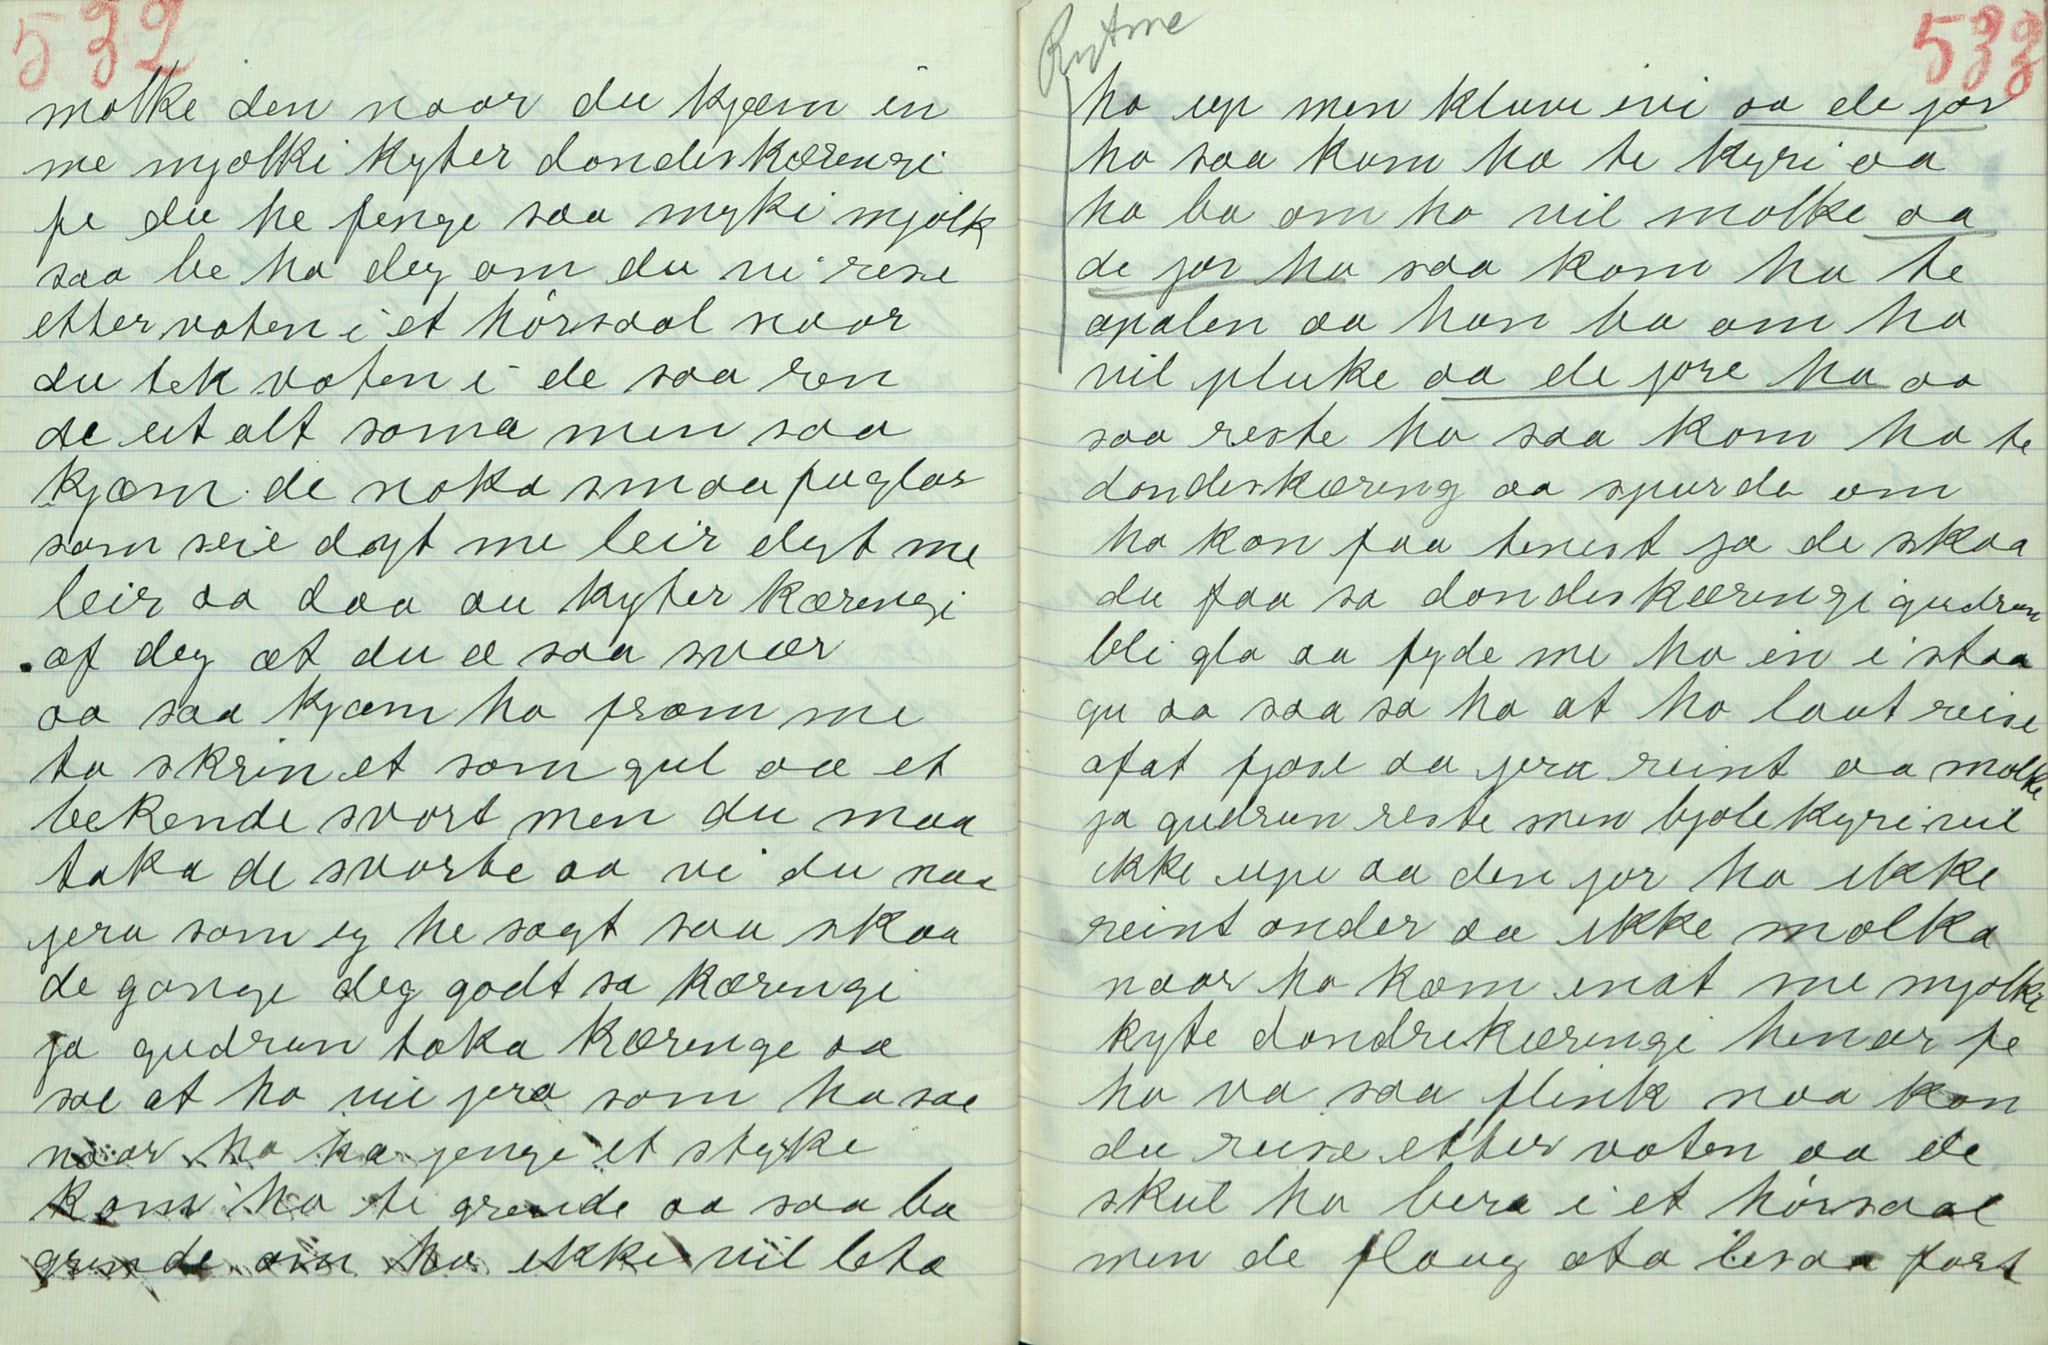 532
molke den naar du kjæm in
me mjølki kyter dondeskærengi
fe du he fenge saa myki mjølk
saa be ha deg om du vi reise
etter vaten i et hørsaal naar
du tek vaten i de saa ren
de ut alt soma men saa
kjæm de noka smaa fuglar
som seie dgt me leir degt me
leir aa daa au kyter kærengi
af deg at du æ saa svær
aa saa kjæm ho fram me
to skrin et som gul aa et
bekende svort men du maa
taka de svorte aa vi du naa
jera som eg he sagt saa skaa
de gange deg godt sa kærengi
ja gudrun taka kærenge aa
sae at ho vil jera som ho sae
naar ho ha jenge et styke
kom ho te grende aa saa ba
grende om ho ikke vil leta
Rytme
533
ho up men kluve ivi aa de jor
ho saa kom ho te kyri aa
ho ba om ho vil molke aa
de jor ho saa kom ho te
apalen aa han ba om ho
vil pluke aa de jore ho aa
saa reste ho saa kom ho te
dondeskæreng aa spurde om
ho kan faa tenest ja de skaa
du faa sa dondeskærengi gudrun
bli gla aa fyde me ho in i staa
gu aa saa sa ho at ho laut reise
afat fjøse aa jera reint aa molke
ja gudrun reste men bjølekyri vil
ikke upe aa den jor ho ikke
reint onder aa ikke molka
naar ho kæm inat me mjølki
kyte dondrekærengi henar fe
ho va saa flink naa kan
du reise etter vaten aa de
skul ho bera i et hørsaal
men de flaug ata lesaa fort